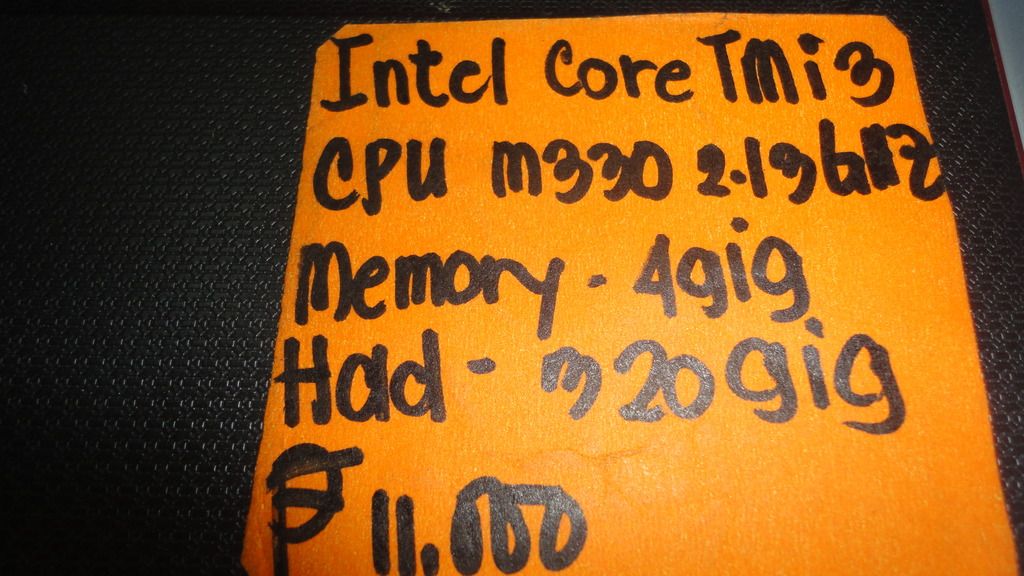 Intel Core TM i3
CPU M330 2.13 GHZ
Memory - 4gig
Hdd - 320gig
₱ 11,000